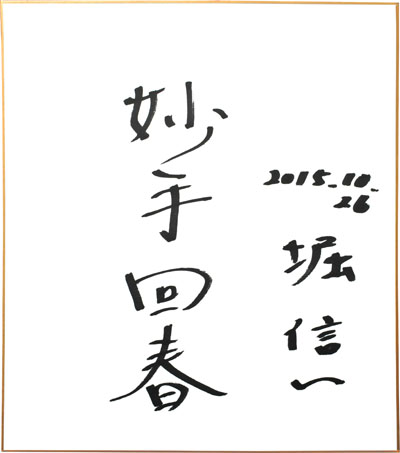 妙手回春
2015.10.
26
堀信一